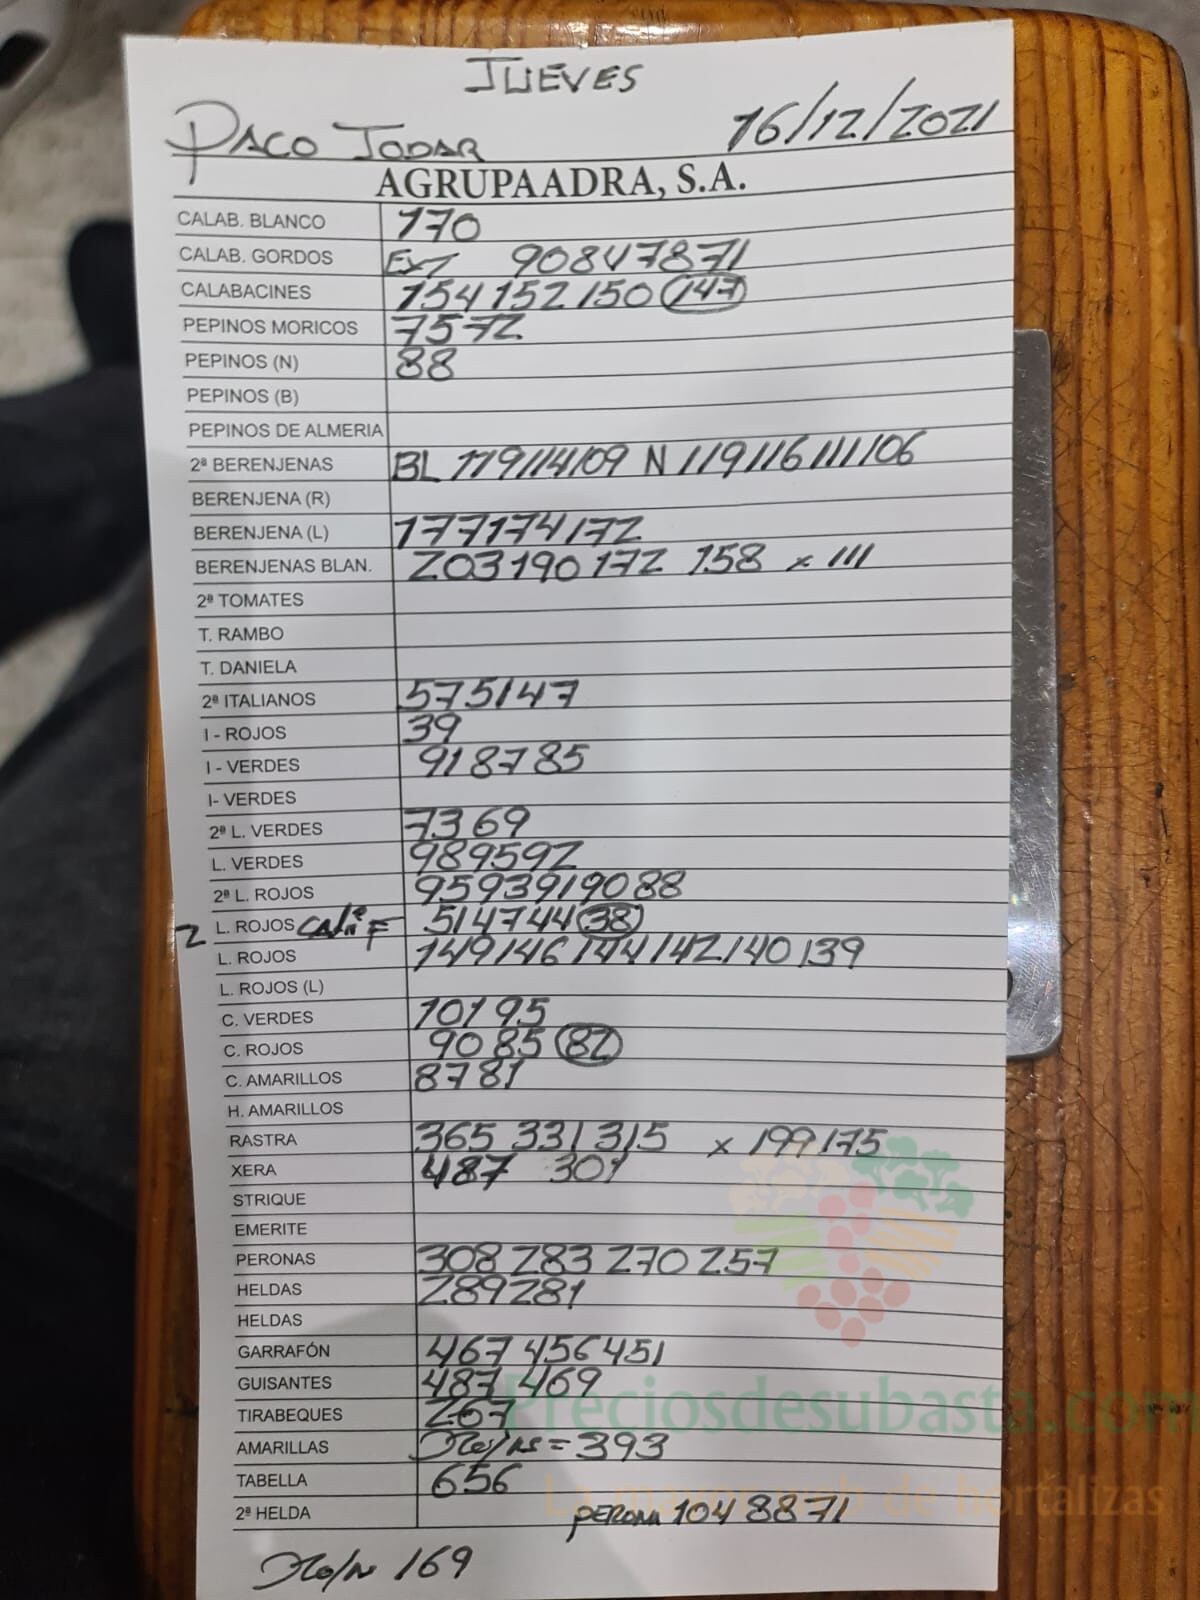 JUEVES
PACO JODAR 16/12/2021
AGRUPAADRA, S.A.
CALAB. BLANCO 170
CALAB. GORDOS EXT 90 84 78 71
CALABACINES 154 152 150 147
PEPINOS MORICOS 75 72
PEPINOS (N) 88
PEPINOS (B)
PEPINOS DE ALMERIA
2ª BERENJENAS BL 119 114 109 N 119 116 111 106
BERENJENA (R)
BERENJENA (L) 177 174 172
BERENJENAS BLAN. 203 190 172 158 x 111
2ª TOMATES
T. RAMBO
T. DANIELA
2ª ITALIANOS 57 51 47
I - ROJOS 39
I - VERDES 91 87 85
I- VERDES
2ª L. VERDES 73 69
L. VERDES 98 95 92
2ª L. ROJOS 95 93 91 90 88
2 L. ROJOS CALIF 51 47 44 38
L. ROJOS 149 146 144 142 140 139
L. ROJOS (L)
C. VERDES 101 95
C. ROJOS 90 85 82
C. AMARILLOS 87 81
H. AMARILLOS
RASTRA 365 331 315 x 199 175
XERA 487 301
STRIQUE
EMERITE
PERONAS 308 283 270 257
HELDAS 289 281
HELDAS
GARRAFÓN 467 456 451
GUISANTES 487 469
TIRABEQUES 267
AMARILLAS = 393
TABELLA 656
2ª HELDA PERONA 104 88 71
169
Preciosdesubasta.com
La mayor web de hortalizas